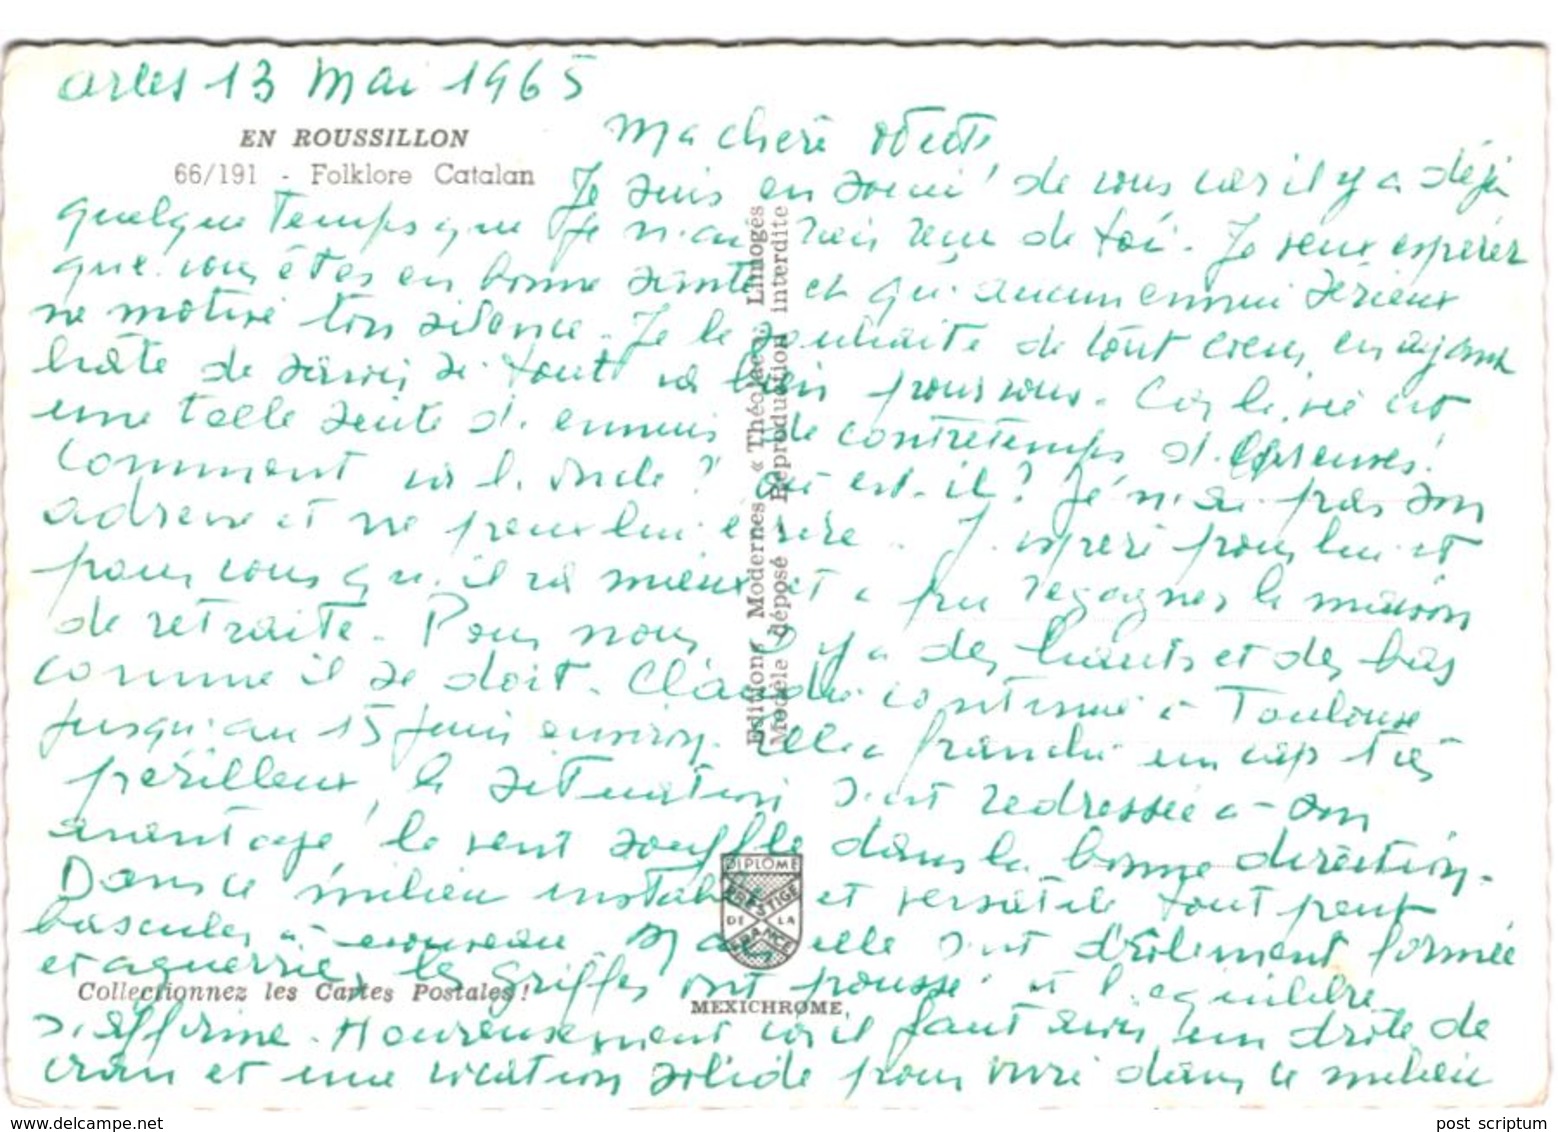 Arles 13 Mai 1965
EN ROUSSILLON
66/191 - Folklore Catalan
Ma chère Odette
Je suis en souci de vous car il y a déjà
quelque temps que je n'ai rien reçu de toi. Je veux espérer
que vous êtes en bonne santé et qu'aucun ennui sérieux
ne motive ton silence. Je le souhaite de tout cœur, en ayant
hâte de savoir si tout va bien pour vous. Car la vie est
une telle suite d'ennuis de contretemps d'épreuves!
Comment va l'oncle? Où est-il? Je n'ai pas son
adresse et ne peux lui écrire. J'espère pour lui et
pour vous qu'il va mieux et a pu regagner la maison
de retraite. Pour nous il y a des hauts et des bas
comme il se doit. Claudie continue à Toulouse
jusqu'au 15 juin environ. Elle a franchi un cap très
périlleux, la situation s'est redressée à son
avantage! le vent souffle dans la bonne direction.
Dans ce milieu instable et versatile tout peut
basculer à nouveau. Mais elle s'est drôlement formée
et aguerrie, les griffes ont poussé et l'équilibre
s'affirme. Heureusement car il faut avoir un drôle de
cran et une vocation solide pour vivre dans ce milieu
Editions Modernes « Théojac » Limoges
Modèle déposé Reproduction interdite
DIPLOME
PRESTIGE
DE LA
FRANCE
Collectionnez les Cartes Postales!
MEXICHROME
www.delcampe.net
post scriptum